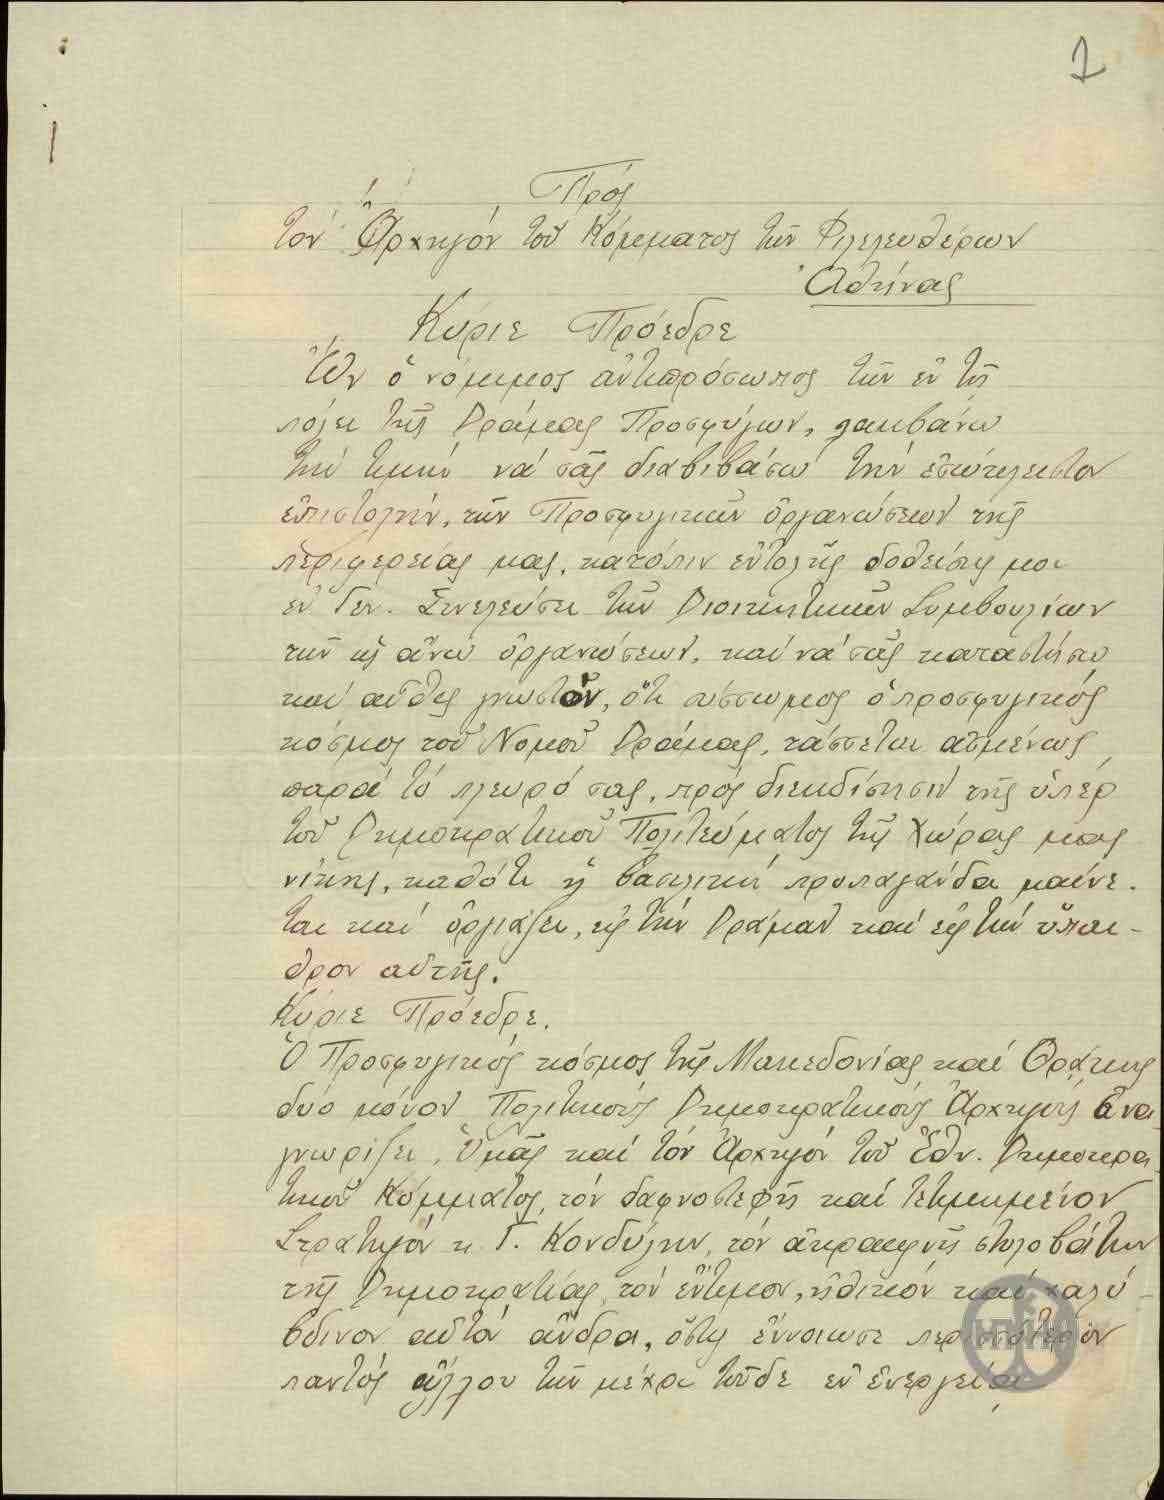 1
Πρός
τόν Ἀρχηγόν τοῦ Κόμματος τῶν Φιλελευθέρων
Ἀθήνας
Κύριε Πρόεδρε
Ὤν ὁ νόμιμος ἀντιπρόσωπος τῶν ἐν τῇ
πόλει τῆς Δράμας Προσφύγων, λαμβάνω
τήν τιμήν νά σᾶς διαβιβάσω τήν ἐσώκλειστον
ἐπιστολήν, τῶν Προσφυγικῶν ὀργανώσεων τῆς
περιφερείας μας, κατόπιν ἐντολῆς δοθείσης μοι
ἐν Γεν. Συνελεύσει τῶν Διοικητικῶν Συμβουλίων
τῶν ὡς ἄνω ὀργανώσεων, καί νά σᾶς καταστήσω
καί αὖθις γνωστόν, ὅτι σύσσωμος ὁ προσφυγικός
κόσμος τοῦ Νομοῦ Δράμας, τάσσεται ἀσμένως
παρά τό πλευρό σας, πρός διεκδίκησιν τῆς ὑπέρ
τοῦ Δημοκρατικοῦ Πολιτεύματος τῆς Χώρας μας
νίκης, καθότι ἡ βασιλική προπαγάνδα μαίνε-
ται καί ὀργιάζει, εἰς τήν Δράμαν καί εἰς τήν ὕπαι-
θρον αὐτῆς.
Κύριε Πρόεδρε.
Ὁ Προσφυγικός κόσμος τῆς Μακεδονίας καί Θράκης
δύο μόνον Πολιτικούς Δημοκρατικούς Ἀρχηγούς ἀνα-
γνωρίζει, Ὑμᾶς καί τόν Ἀρχηγόν τοῦ Ἐθν. Δημοκρα-
τικοῦ Κόμματος, τόν δαφνοστεφῆ καί τετιμημένον
Στρατηγόν κ. Γ. Κονδύλην, τόν ἀκραιφνῆ στυλοβάτην
τῆς Δημοκρατίας, τόν ἔντιμον, ἠθικόν καί χαλύ-
βδινον αὐτόν ἄνδρα, ὅστις ἔννοιωσε περισσότερον
παντός ἄλλου τῶν μέχρι τοῦδε ἐν ἐνεργείᾳ